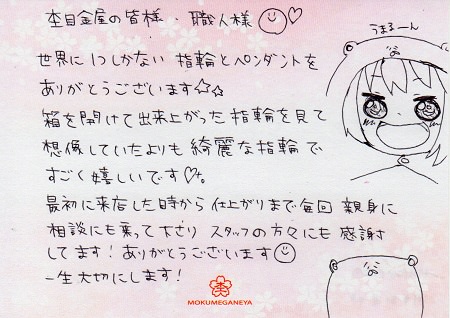 杢目金屋の皆様・職人様♡
うまるーん
世界に1つしかない 指輪とペンダントを
ありがとうございます☆☆
箱を開けて出来上がった指輪を見て
想像していたよりも綺麗な指輪で
すごく嬉しいです♡。
最初に来店した時から仕上がりまで毎回 親身に
相談にも乗って下さり スタッフの方々にも 感謝
してます!ありがとうございます
一生大切にします!
MOKUMEGANEYA